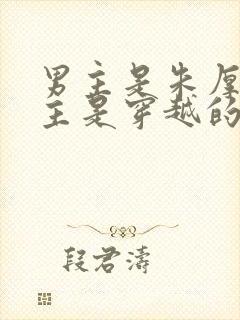 男主是朱厚
主是穿越的
段君濤